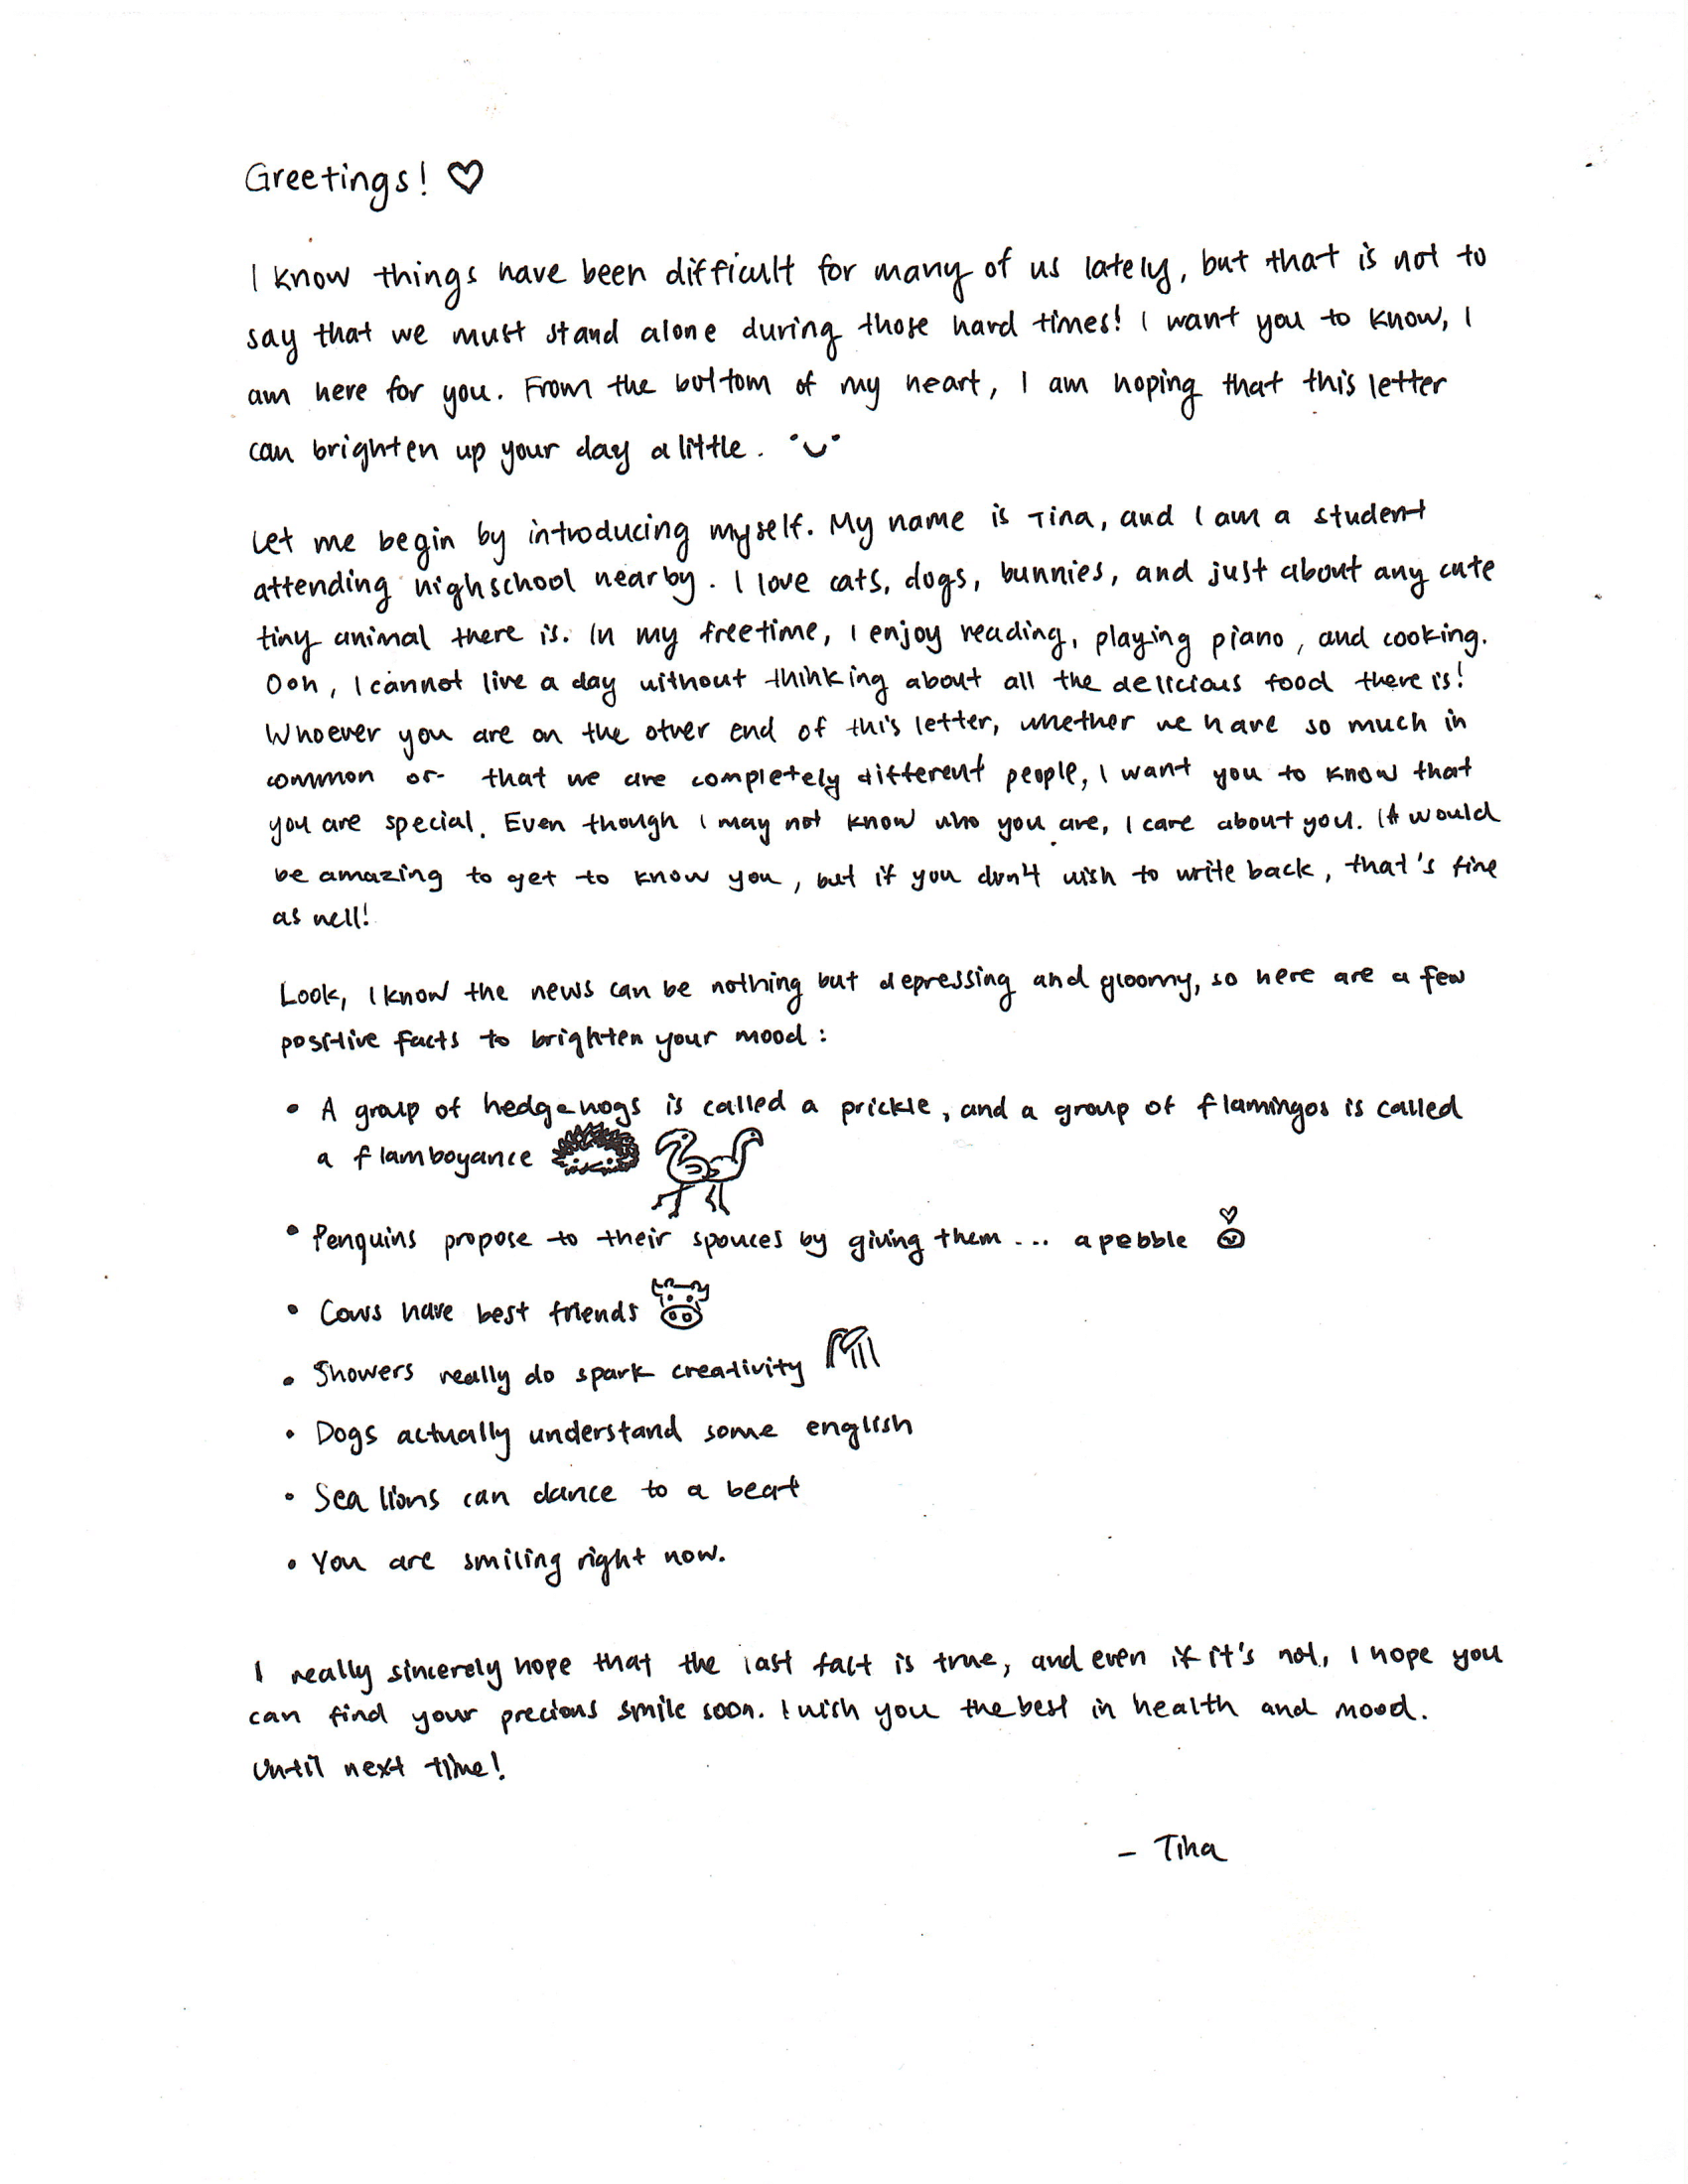 Greetings! ♡
I know things have been difficult for many of us lately, but that is not to
say that we must stand alone during those hard times! I want you to know, I
am here for you. From the bottom of my heart, I am hoping that this letter
can brighten up your day a little.
Let me begin by introducing myself. My name is Tina, and I am a student
attending highschool nearby. I love cats, dogs, bunnies, and just about any cute
tiny animal there is. In my freetime, I enjoy reading, playing piano, and cooking.
Ooh, I cannot live a day without thinking about all the delicious food there is!
Whoever you are on the other end of this letter, whether we have so much in
common or that we are completely different people, I want you to know that
you are special. Even though I may not know who you are, I care about you. It would
be amazing to get to know you, but if you don't wish to write back, that's fine
as well!
Look, I know the news can be nothing but depressing and gloomy, so here are a few
positive facts to brighten your mood:
• A group of hedgehogs is called a prickle, and a group of flamingos is called
a flamboyance
• Penguins propose to their spouces by giving them... a pebble
• Cows have best friends
• Showers really do spark creativity
• Dogs actually understand some english
• Sea lions can dance to a beat
• You are smiling right now.
I really sincerely hope that the last fact is true, and even if it's not, I hope you
can find your precious smile soon. I wish you the best in health and mood.
Until next time!
- Tina